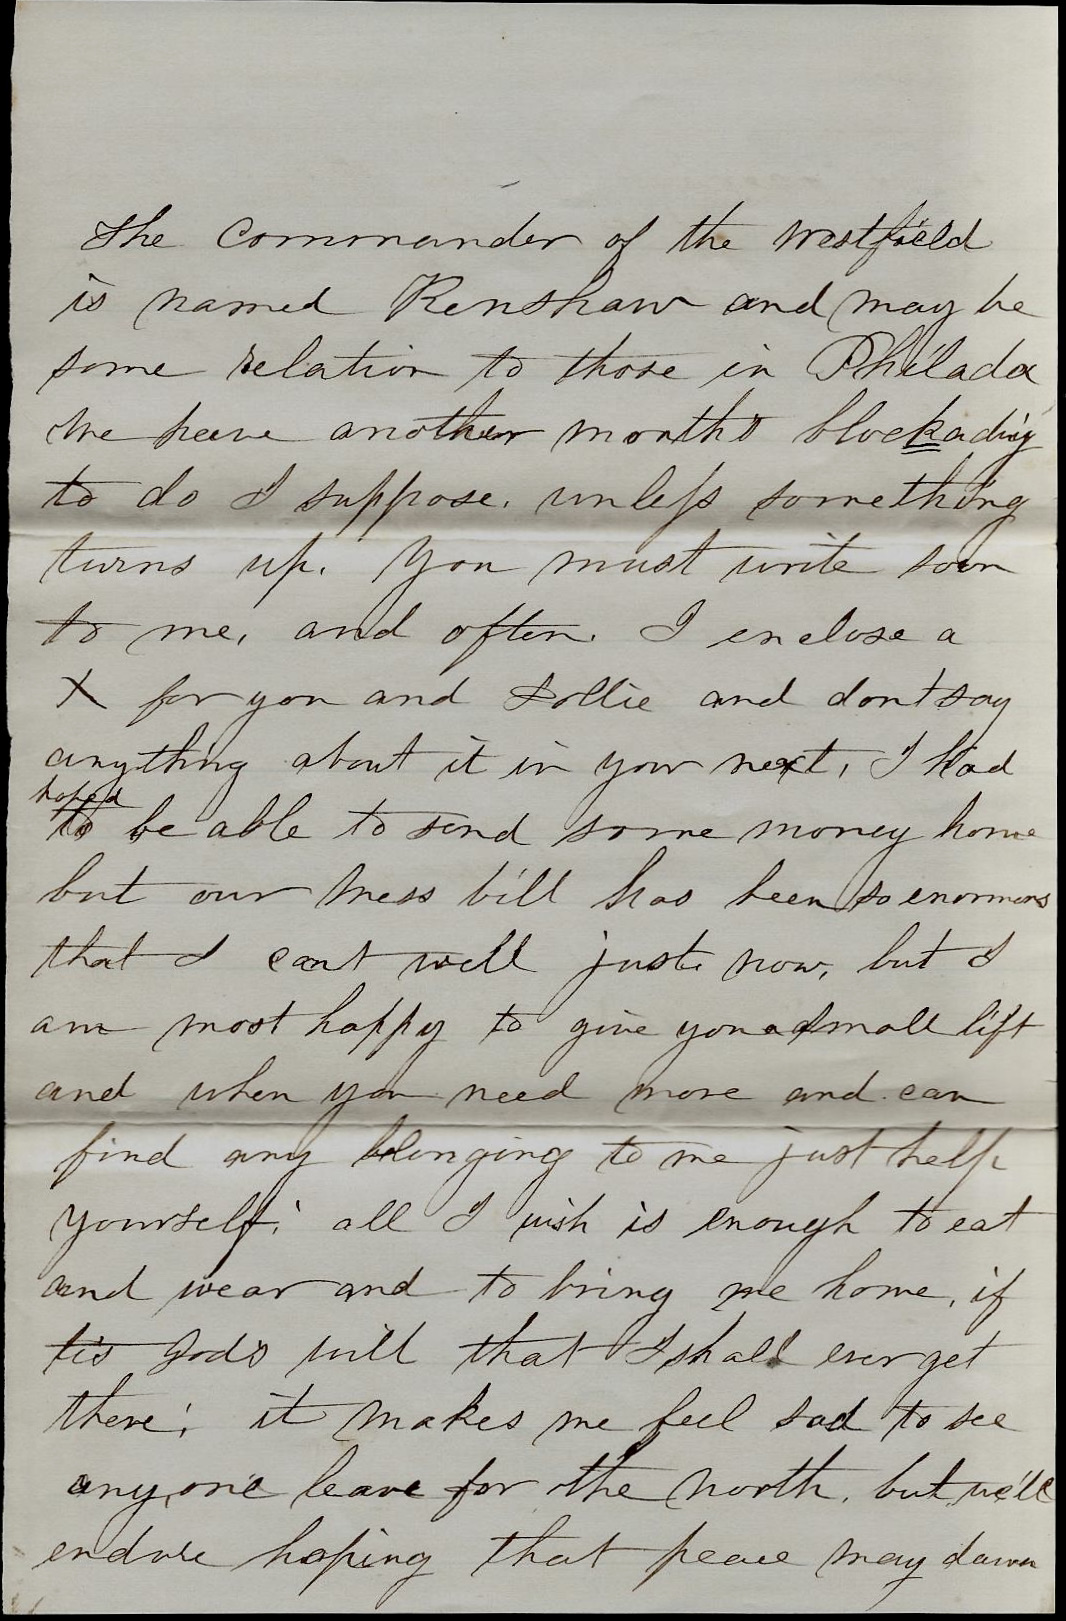 The Commander of the Westfield
is named Renshaw and may be
some relation to those in Philada
We have another month's blockading
to do I suppose. unless something
turns up. You must write soon
to me, and often. I enclose a
X for you and Sollie and don't say
anything about it in your next, I had
hoped
to be able to send some money home
but our mess bill has been so enormous
that I can't well just now, but I
am most happy to give you a small lift
and when you need more and can
find any belonging to me just help
yourself; all I wish is enough to eat
and wear and to bring me home, if
tis God's will that I shall ever get
there; it makes me feel sad to see
any one leave for the north, but we'll
endure hoping that peace may dawn